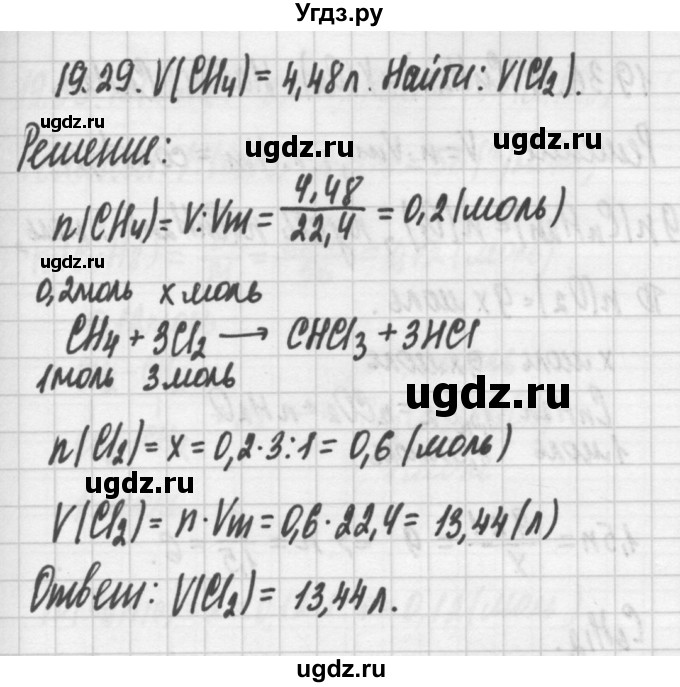 Угдз.ру
19.29. V(CH₄) = 4,48 л. Найти: V(Cl₂).
Решение:
ugdz.ru
ugdz.ru
n(CH₄) = V : Vm = 4,48 / 22,4 = 0,2 (моль)
ugdz.ru
0,2 моль x моль
CH₄ + 3Cl₂ → CHCl₃ + 3HCl
1 моль 3 моль
ugdz.ru
n(Cl₂) = x = 0,2 · 3 : 1 = 0,6 (моль)
ugdz.ru
V(Cl₂) = n · Vm = 0,6 · 22,4 = 13,44 (л)
ugdz.ru
Ответ: V(Cl₂) = 13,44 л.
ugdz.ru
ugdz.ru